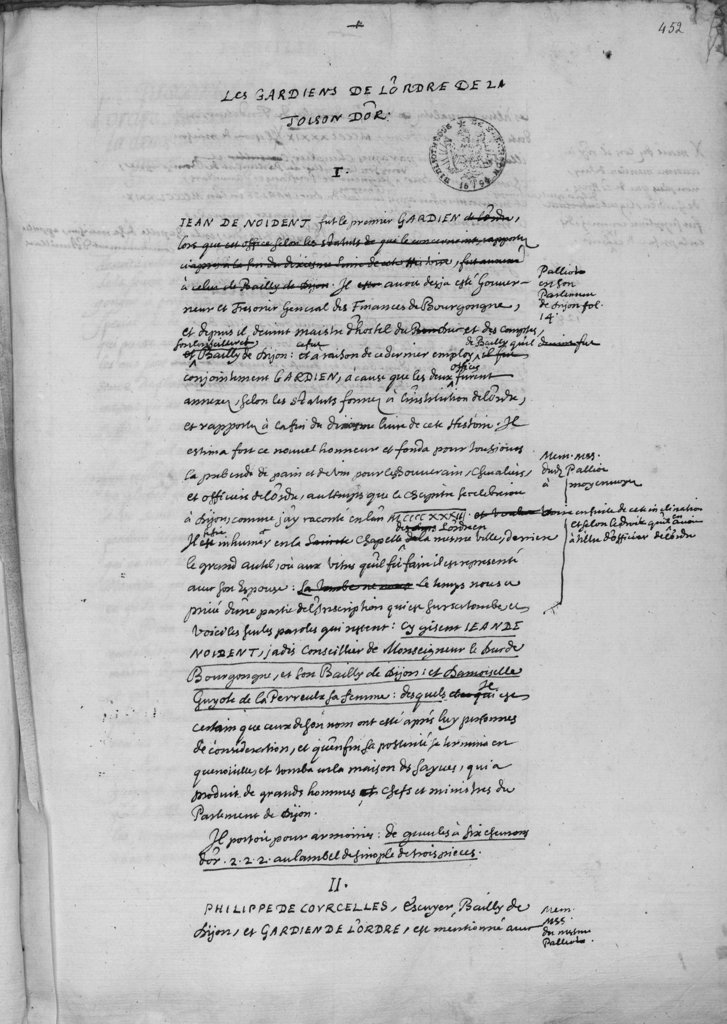 452
LES GARDIENS DE L'ORDRE DE LA
TOISON D'OR.
BIBLIOTHEQUE DE
I.
JEAN DE NOIDENT fut le premier GARDIEN de l'ordre,
lors que cet office selon les statuts de
à celuy de Bailly de Dijon. Il avoit desja esté Gouver-
neur et Tresorier General des Finances de Bourgongne,
et depuis il devint maistre d'hostel du et des Comptes,
son conseiller et
et Bailly de Dijon: et à raison de ce dernier employ de Bailly qu'il fut
conjointement GARDIEN, à cause que les deux offices furent
annexez, selon les statuts formez à l'institution de l'ordre,
et rapportez à la fin du livre de cete Histoire. Il
estima fort ce nouvel honneur et fonda pour tousjours
la prebende de pain et de vin pour le Souverain, Chevaliers,
et officiers de l'ordre, au temps que le Chapitre se celebreroit
à Dijon, comme j'ay raconté en l'an MCCCCXXXIII. en suite de cete inclination
et selon le droit qu'il en avoit
à tiltre d'officier de l'ordre
Il est inhumé en la Chapelle de la mesme ville, derriere
le grand autel, où aux vitres qu'il fit faire il est representé
avec son Espouse: La tombe ne Le temps nous a
privé d'une partie de l'Inscription qui est sur sa tombe, et
voicy les seules paroles qui restent: Cy gisent JEAN DE
NOIDENT, jadis Conseillier de Monseigneur le Duc de
Bourgongne, et son Bailly de Dijon: et Damoiselle
Guyote de la Perreulx sa femme: desquels
certain que ceux de son nom ont esté aprés luy personnes
de consideration, et qu'enfin sa posterité se termina en
quenoille, et tomba en la maison des Sayves, qui a
produit de grands hommes et Chefs et ministres du
Parlement de Dijon.
Il portoit pour armoiries: de gueules à six chevrons
d'or. 2. 2. 2. au lambel de sinople de trois pieces.
II.
PHILIPPE DE COURCELLES, Escuyer, Bailly de
Dijon, et GARDIEN DE L'ORDRE, est mentionné avec
Palliot
en son
Parlement
de Dijon fol.
14.
Mem. MSS.
dudit Palliot
à moy envoyez
Mem.
MSS.
du mesme
Palliot.